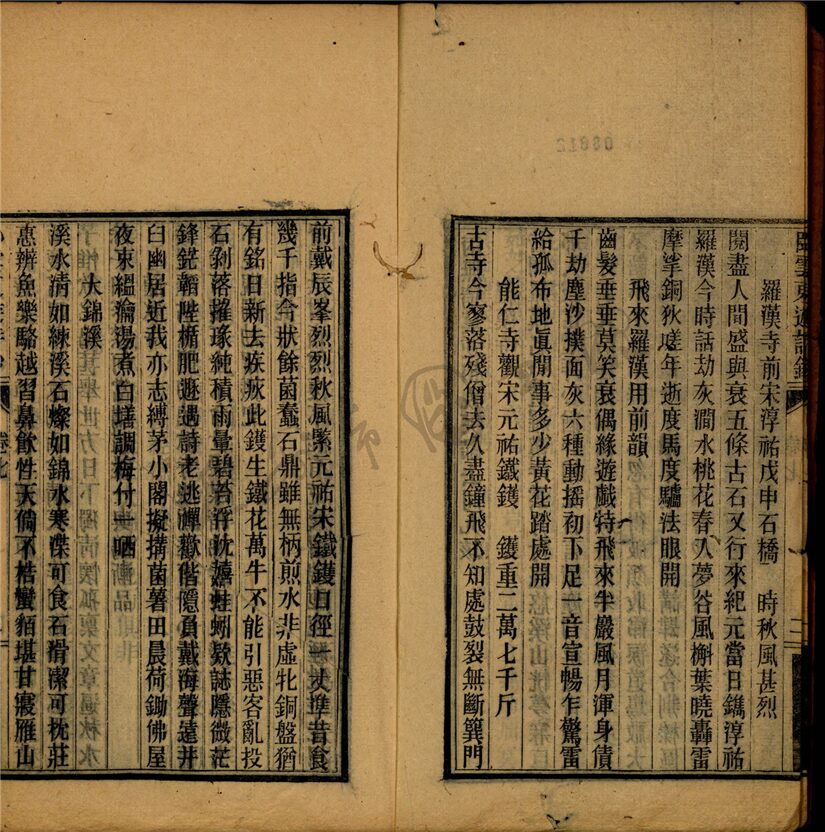 羅漢寺前宋淳祐戊申石橋　時秋風甚烈
閱盡人間盛與衰五條古石又行來紀元當日鐫淳祐
羅漢今時話劫灰澗水桃花春入夢谷風槲葉曉轟雷
摩挲銅狄嗟年逝度馬度驢法眼開
飛來羅漢用前韻
齒髮垂垂莫笑衰偶緣遊戲特飛來半巖風月渾身債
千劫塵沙撲面灰六種動搖初下足一音宣暢乍驚雷
給孤布地眞閒事多少黃花踏處開
能仁寺觀宋元祐鐵鑊　鑊重二萬七千斤
古寺今寥落殘僧去久盡鐘飛不知處鼓裂無斷簨門
前戴辰峯烈烈秋風緊元祐宋鐵鑊口徑一丈準昔食
幾千指今狀餘菌蠢石鼎雖無柄煎水非虛牝銅盤猶
有銘日新去疾疢此鑊生鐵花萬牛不能引惡客亂投
石剝落摧瑑純積雨暈碧苔浮沈嬉蛙蚓欵誌隱微茫
鋒銳韜陛楯肥遯遇詩老逃禪歡偕隱負戴海聲遠井
臼幽居近我亦志縛茅小閣擬搆菌薯田晨荷鋤佛屋
夜束縕瀹湯煮白墡調梅付一哂
大錦溪
溪水清如練溪石燦如錦水寒渫可食石滑潔可枕莊
惠辨魚樂駱越習鼻飲性天倘不梏蠻貊堪甘寢雁山